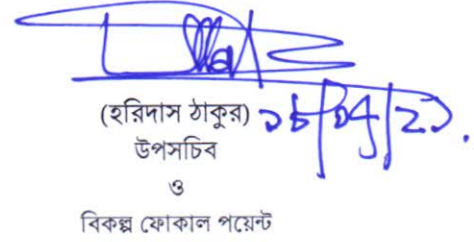 (হরিদাস ঠাকুর)
উপসচিব
ও
বিকল্প ফোকাল পয়েন্ট